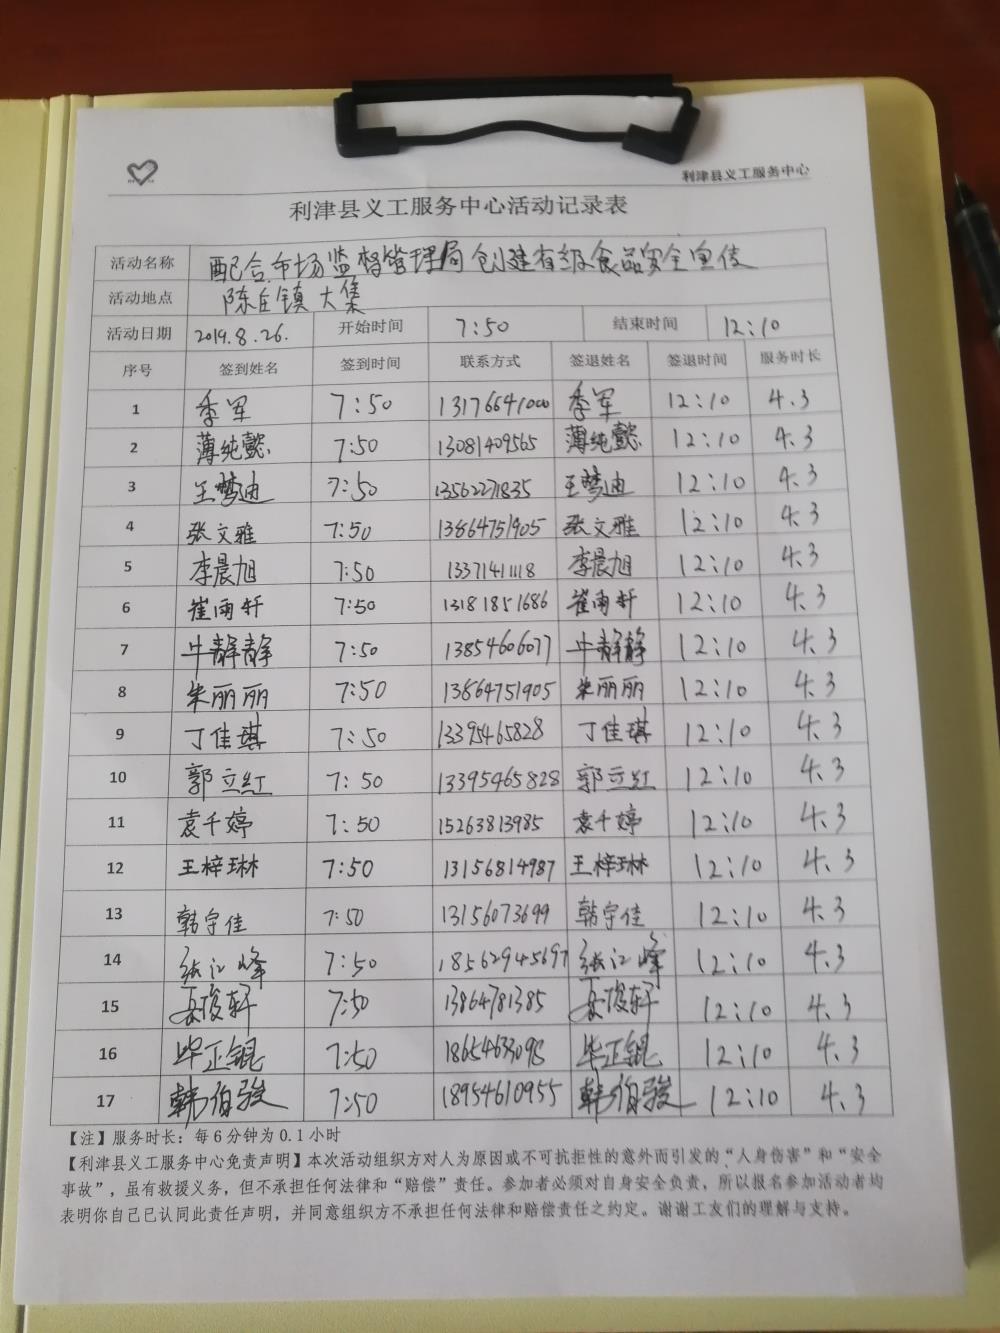 利津县义工服务中心
利津县义工服务中心活动记录表
活动名称 配合市场监督管理局创建省级食品安全宣传
活动地点 陈庄镇大集
活动日期 2019.8.26. 开始时间 7:50 结束时间 12:10
序号 签到姓名 签到时间 联系方式 签退姓名 签退时间 服务时长
1 季军 7:50 13176641000 季军 12:10 4.3
2 薄纯懿 7:50 13081409565 薄纯懿 12:10 4.3
3 王梦迪 7:50 13562271835 王梦迪 12:10 4.3
4 张文雅 7:50 13864751905 张文雅 12:10 4.3
5 李晨旭 7:50 13371411118 李晨旭 12:10 4.3
6 崔雨轩 7:50 13181851686 崔雨轩 12:10 4.3
7 牛静静 7:50 13854606077 牛静静 12:10 4.3
8 朱丽丽 7:50 13864751905 朱丽丽 12:10 4.3
9 丁佳琪 7:50 13395465828 丁佳琪 12:10 4.3
10 郭立红 7:50 13395465828 郭立红 12:10 4.3
11 袁千婷 7:50 15263813985 袁千婷 12:10 4.3
12 王梓琳 7:50 13156814987 王梓琳 12:10 4.3
13 韩宇佳 7:50 13156073699 韩宇佳 12:10 4.3
14 张江峰 7:50 18562945697 张江峰 12:10 4.3
15 岳俊轩 7:50 13864781385 岳俊轩 12:10 4.3
16 毕正锟 7:50 毕正锟 12:10 4.3
17 韩伯骏 7:50 18954610955 韩伯骏 12:10 4.3
【注】服务时长：每6分钟为0.1小时
【利津县义工服务中心免责声明】本次活动组织方对人为原因或不可抗拒性的意外而引发的“人身伤害”和“安全
事故”，虽有救援义务，但不承担任何法律和“赔偿”责任。参加者必须对自身安全负责，所以报名参加活动者均
表明你自己已认同此责任声明，并同意组织方不承担任何法律和赔偿责任之约定。谢谢工友们的理解与支持。